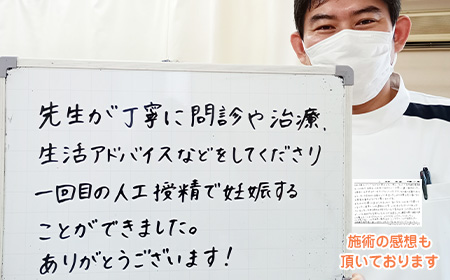 先生が丁寧に問診や治療、
生活アドバイスなどをしてくださり
一回目の人工授精で妊娠する
ことができました。
ありがとうございます!
施術の感想も
頂いております